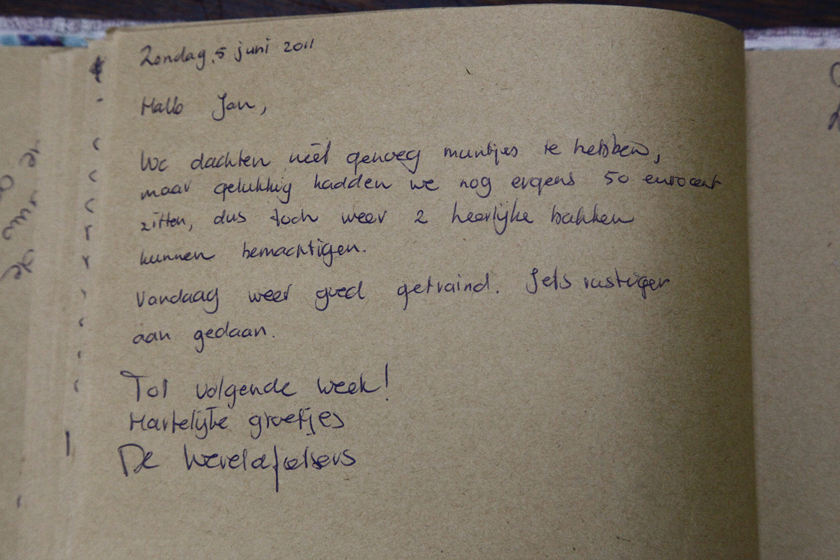 Zondag, 5 juni 2011
Hallo Jan,
We dachten niet genoeg muntjes te hebben,
maar gelukkig hadden we nog ergens 50 eurocent
zitten, dus toch weer 2 heerlijke bakken
kunnen bemachtigen.
Vandaag weer goed getraind. Iets rustiger
aan gedaan.
Tot volgende week!
Hartelijke groetjes
De Wereldfietsers